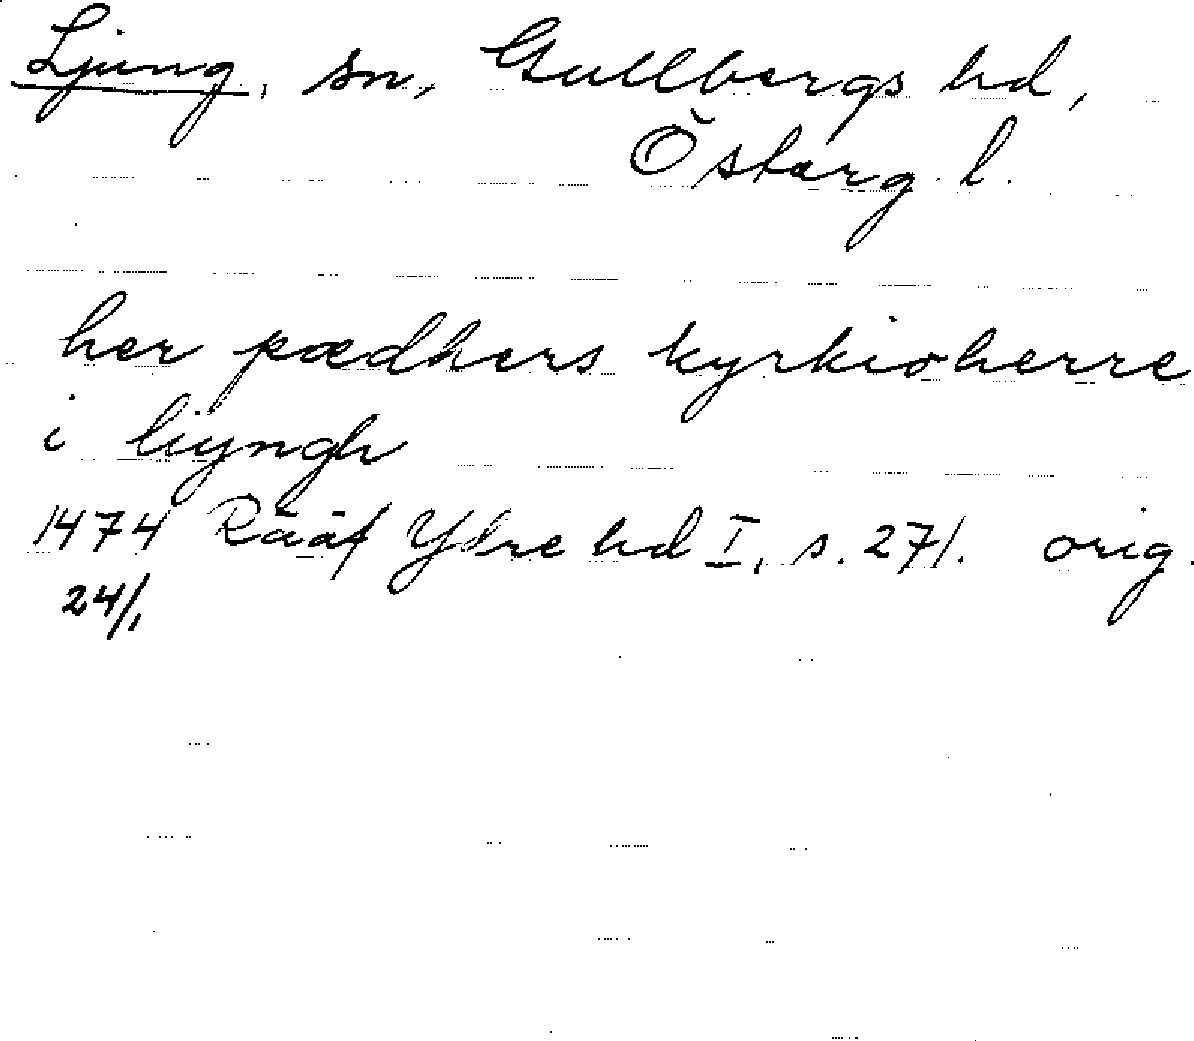 Ljung, sn, Gullbergs hd,
Österg. l.
her pædhers kyrkioherre
i liyngh
1474 Rääf Ydre hd I, s. 271. orig.
24/1